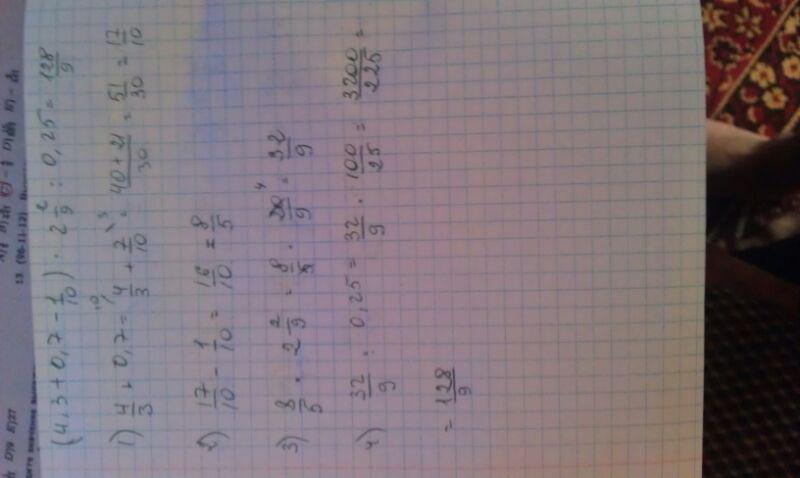 13. (96-11-12)
(4,3 + 0,7 - 1/10) · 2 2/9 : 0,25 = 128/9
1) 4/3 + 0,7 = 4/3 + 7/10 = 40+21/30 = 51/30 = 17/10
2) 17/10 - 1/10 = 16/10 = 8/5
3) 8/5 · 2 2/9 = 8/5 · 20/9 = 32/9
4) 32/9 : 0,25 = 32/9 · 100/25 = 3200/225 =
= 128/9